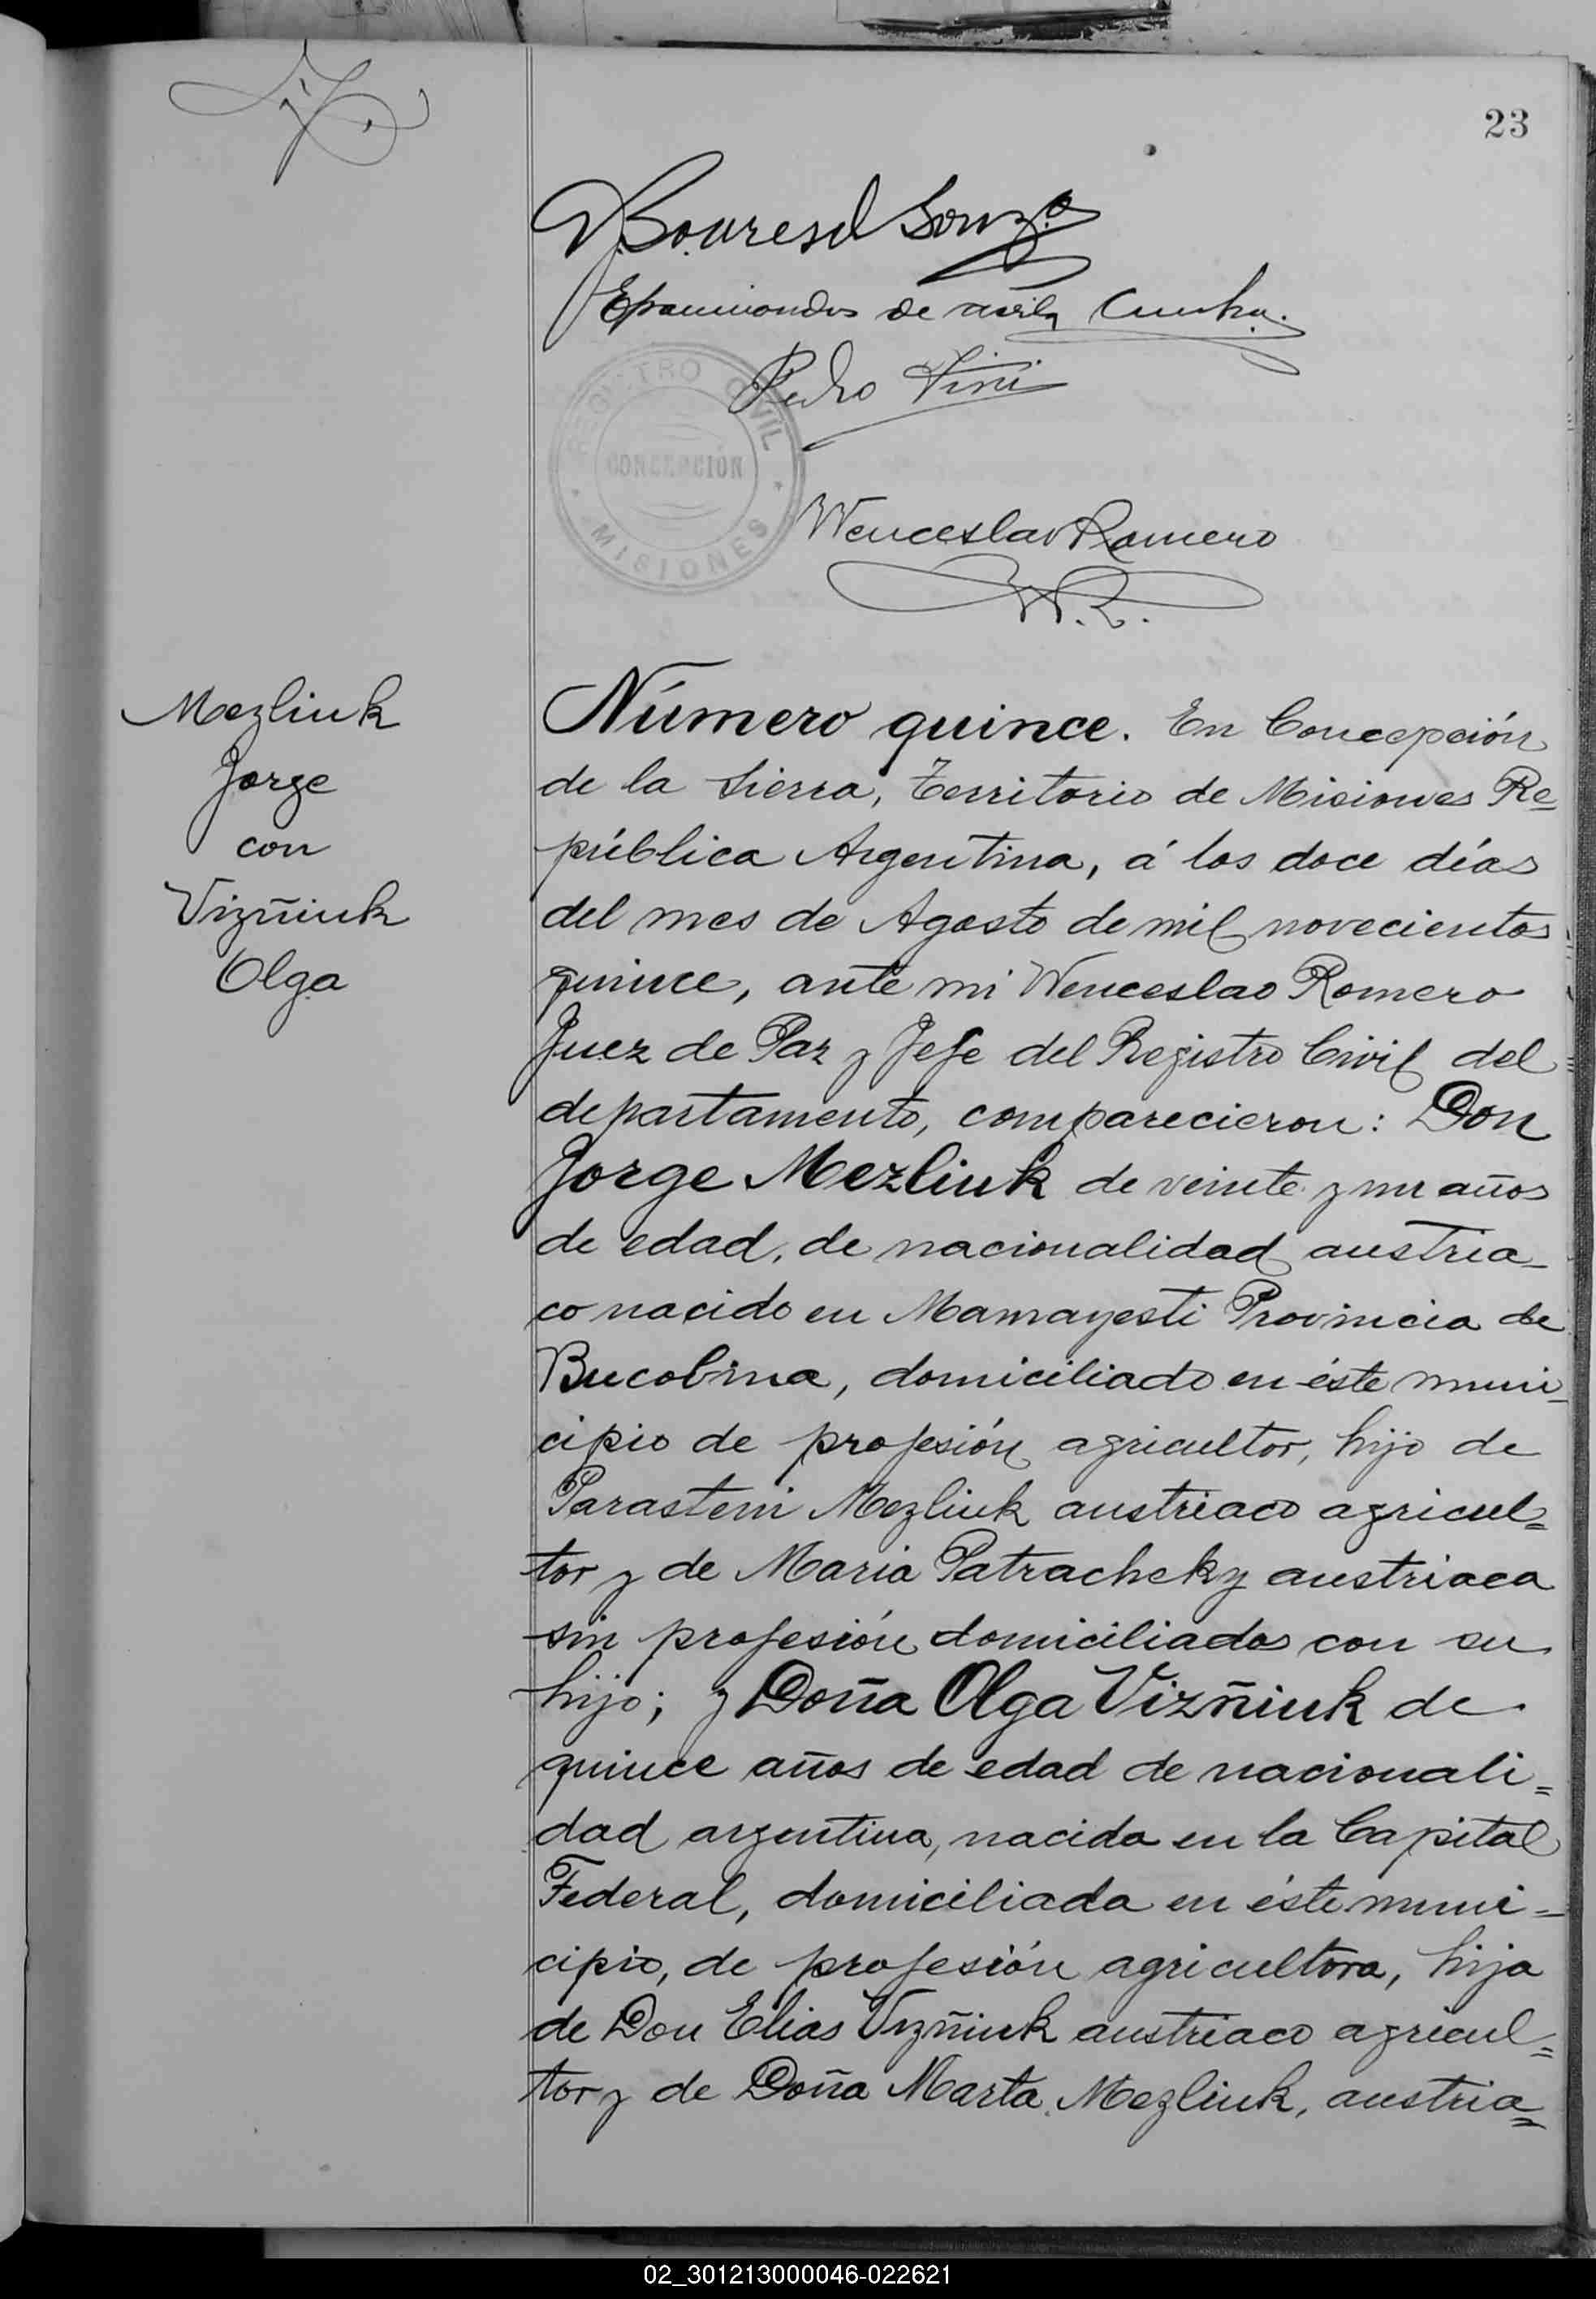 23
Epaminondas de Avila Cunha.
Pedro
REGISTRO CIVIL
CONCEPCIÓN
MISIONES
Wenceslao Romero
W.R.
Mezliuk
Jorge
con
Vizñiuk
Olga
Número quince. En Concepción
de la Sierra, Territorio de Misiones Re=
pública Argentina, á los doce días
del mes de Agosto de mil novecientos
quince, ante mi Wenceslao Romero
Juez de Paz y Jefe del Registro Civil del
departamento, comparecieron: Don
Jorge Mezliuk de veinte y un años
de edad, de nacionalidad austria-
co nacido en Mamayesti Provincia de
Bucobina, domiciliado en éste muni-
cipio de profesión agricultor, hijo de
Parasteni Mezliuk austriaco agricul=
tor y de Maria Patracheky austriaca
sin profesión domiciliados con su
hijo; y Doña Olga Vizñiuk de
quince años de edad de nacionali=
dad argentina, nacida en la Capital
Federal, domiciliada en éste muni=
cipio, de profesión agricultora, hija
de Don Elias Vizñiuk austriaco agricul=
tor y de Doña Marta Mezliuk, austria=
02_301213000046-022621